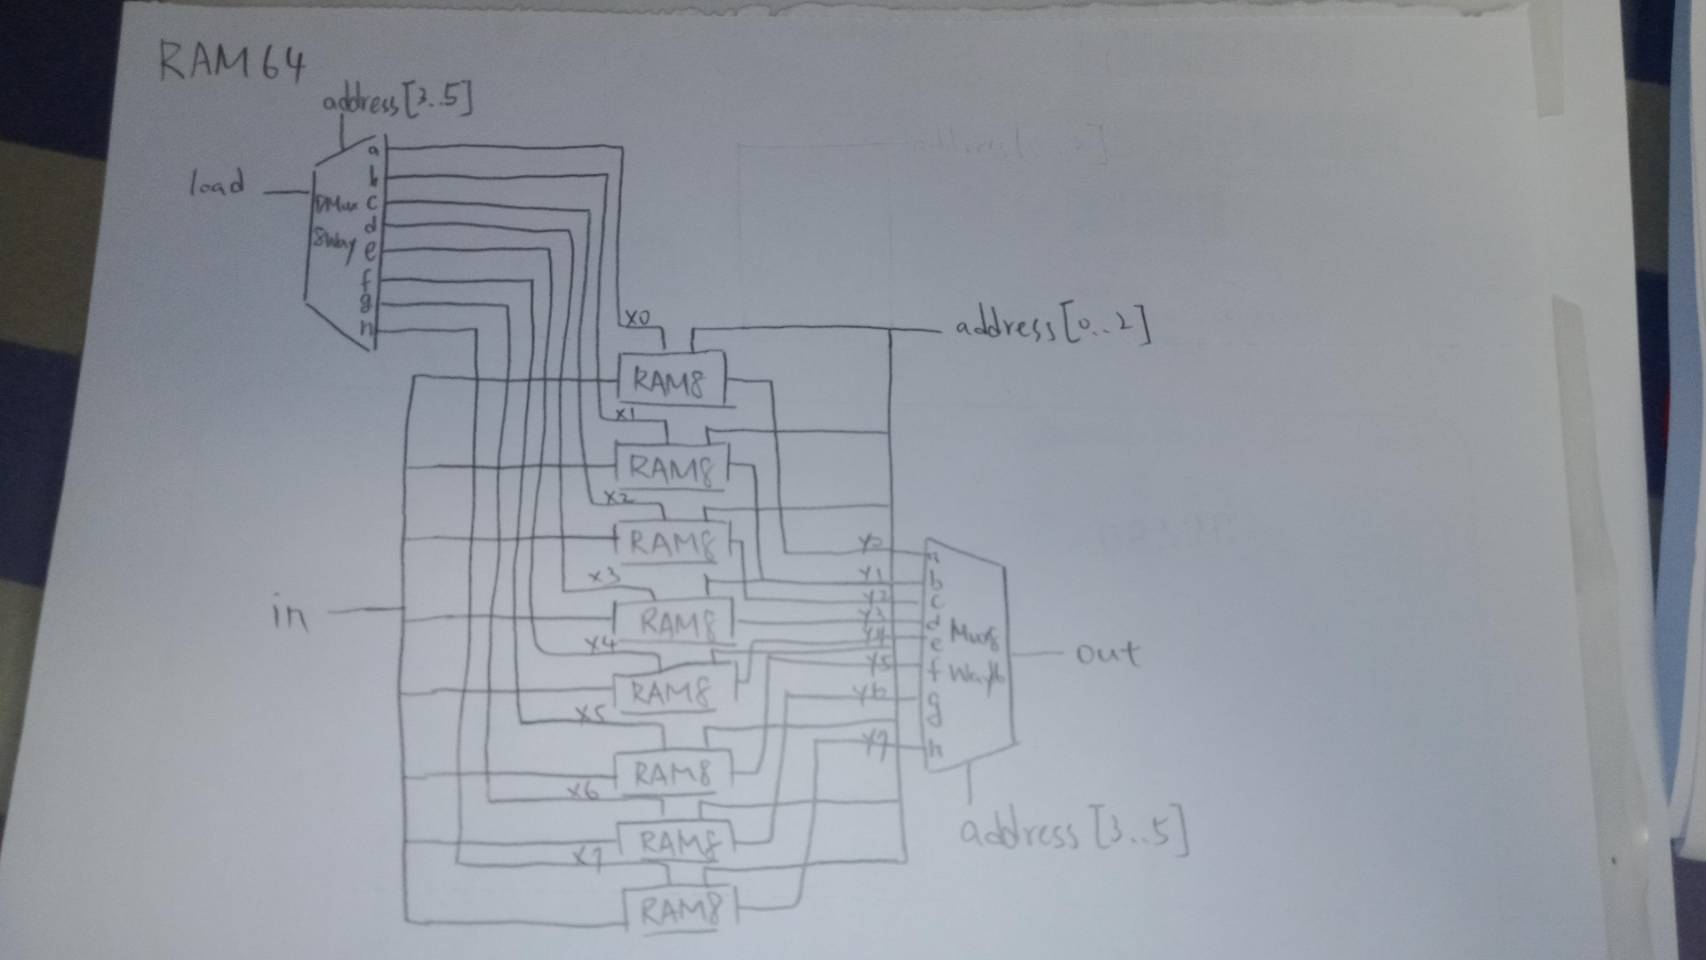 RAM64
address[3..5]
load
DMux
8Way
a
b
c
d
e
f
g
h
X0
address[0..2]
RAM8
X1
RAM8
X2
RAM8
X3
RAM8
X4
RAM8
X5
RAM8
X6
RAM8
X7
RAM8
in
Y0
Y1
Y2
Y3
Y4
Y5
Y6
Y7
a
b
c
d
e
f
g
h
Mux8
Way16
out
address[3..5]